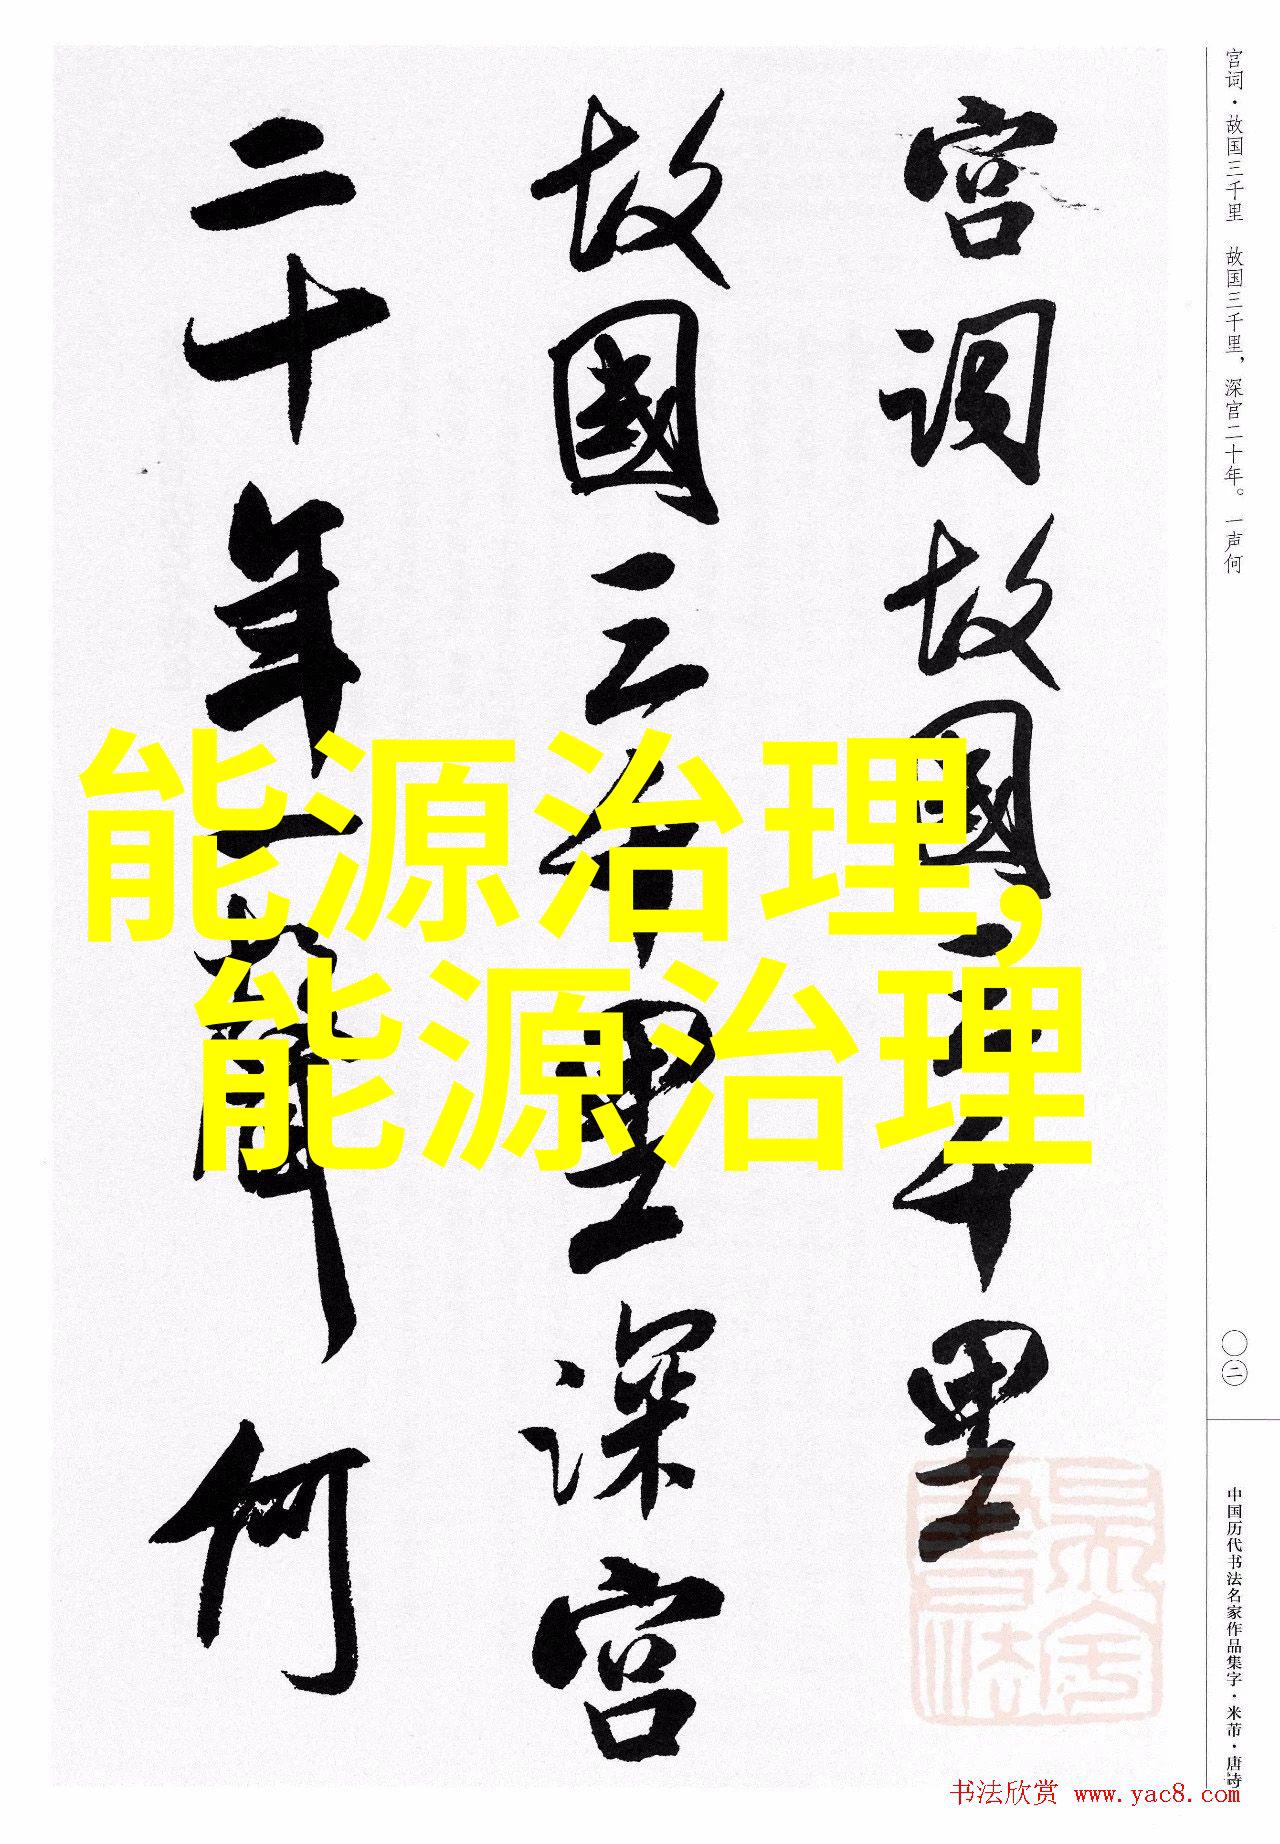 宫词故國三千里
故國三千里深宫
二十年一聲何
能源治理，
能源治理
宫词·故国三千里 故国三千里，深宫二十年。一声何
〇二
中国历代书法名家作品集字·米芾·唐诗
书法欣赏 www.yac8.com